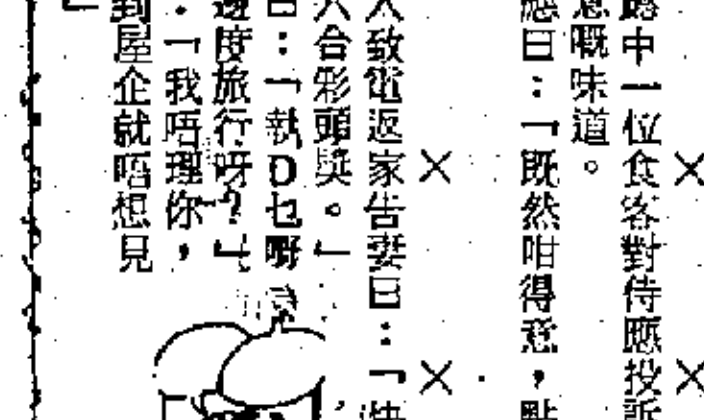 露中一位食客對侍應投訴
意嘅味道。
應曰：「既然咁得意，點
人致電返家告妻曰：「快
六合彩頭獎。」
曰：「執D乜嘢
邊度旅行呀？」
：「我唔理你，
到屋企就唔想見
」